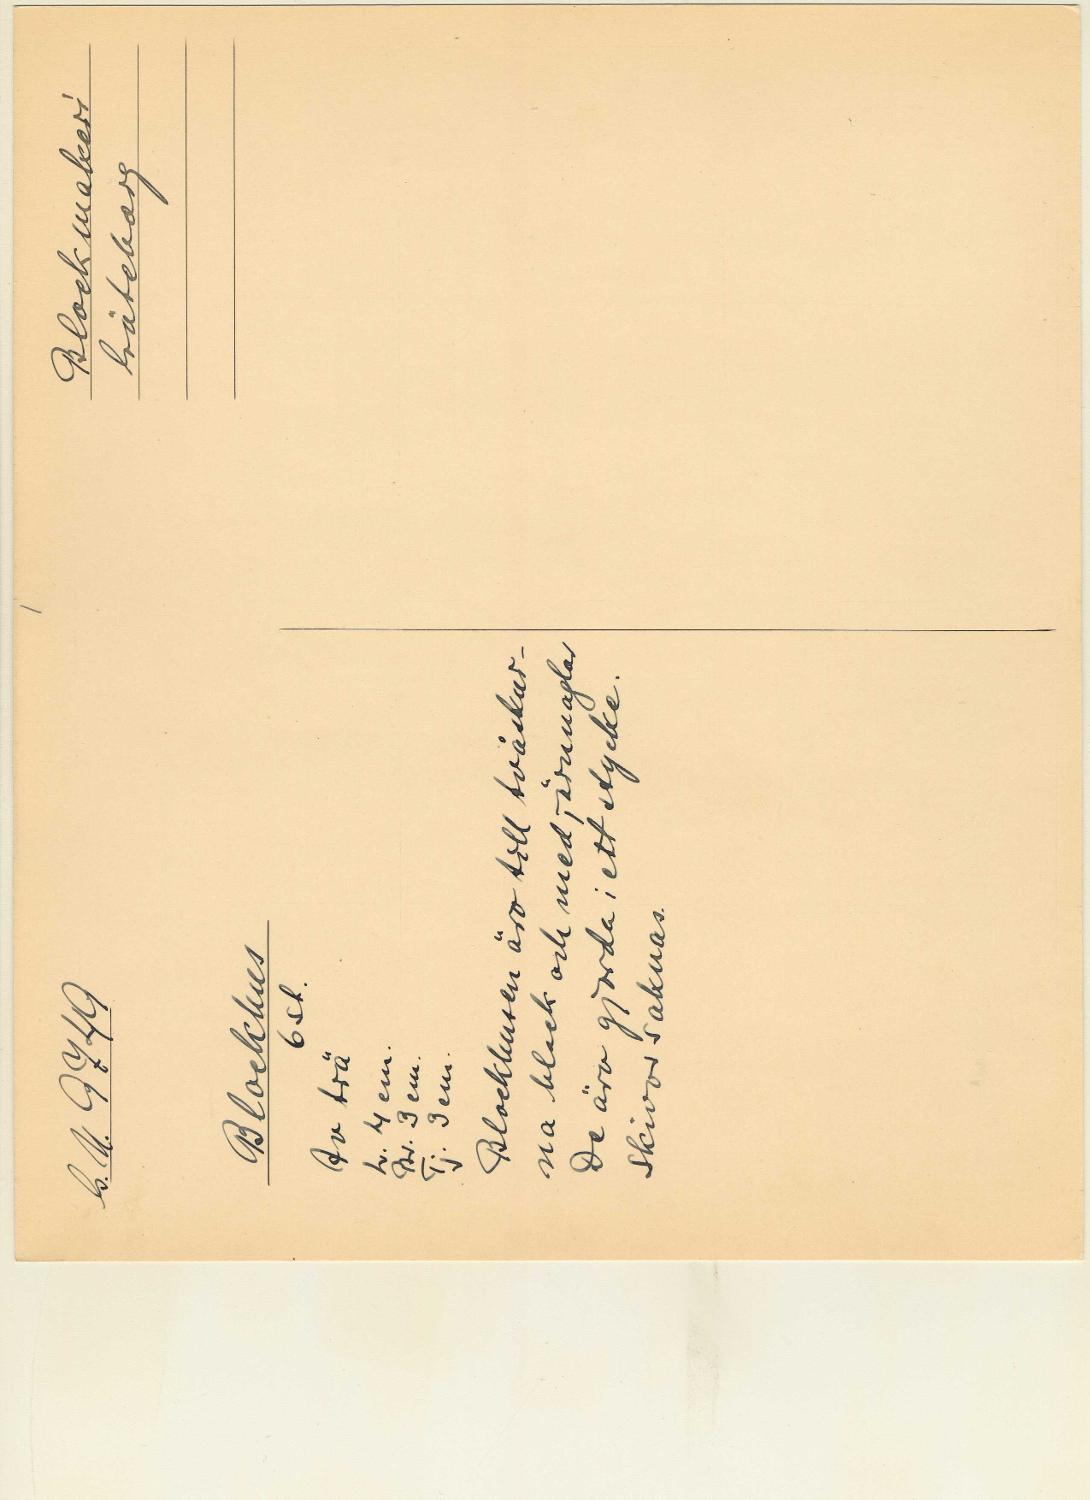 G.M. 9749
Blockmakeri
Göteborg
Blockhus
6 st.
Av trä
L. 4 cm.
Br. 3 cm.
Tj. 3 cm.
Blockhusen äro till tvåskur-
na block och med järnnaglar
De äro gjorda i ett stycke.
Skivor saknas.